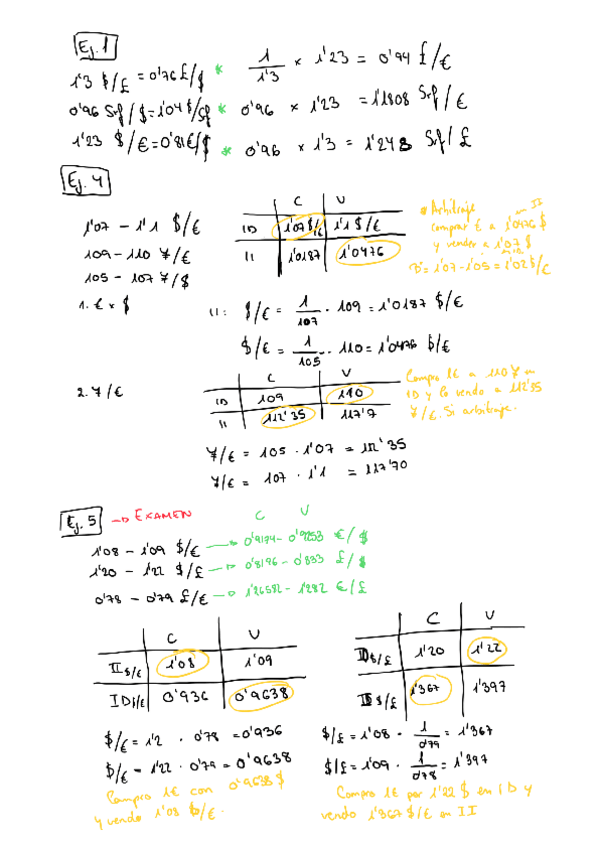 Ej. 1
1'3 $/£ = 0'76 £/$ * 1/1'3 × 1'23 = 0'94 £/€
0'96 Srf/$ = 1'04 $/Sf * 0'96 × 1'23 = 1'1808 Srf/€
1'23 $/€ = 0'81 €/$ * 0'96 × 1'3 = 1'248 Srf/£
Ej. 4
1'07 - 1'1 $/€
109 - 110 ¥/€
105 - 107 ¥/$
C V
ID 1'07 $/€ 1'1 $/€
II 1'0187 1'0476
* Arbitraje en II
comprar € a 1'0476 $
y vender a 1'07 $
B=1'07-1'05=1'02 $/€
1. € × $
II: $/€ = 1/107 · 109 = 1'0187 $/€
$/€ = 1/105 · 110 = 1'0476 $/€
2. ¥/€
C V
ID 109 110
II 112'35 117'7
Compro 1€ a 110 ¥ en
ID y lo vendo a 112'35
¥/€. Si arbitraje.
¥/€ = 105 · 1'07 = 112'35
¥/€ = 107 · 1'1 = 117'70
Ej. 5 → EXAMEN
C V
1'08 - 1'09 $/€ → 0'9174 - €/$
1'20 - 1'22 $/£ → 0'8196 - 0'833 £/$
0'78 - 0'79 £/€ → 1'26582 - 1'282 €/£
C V
II $/€ 1'08 1'09
ID $/€ 0'936 0'9638
$/€ = 1'2 · 0'78 = 0'936
$/€ = 1'22 · 0'79 = 0'9638
Compro 1€ con 0'9638 $
y vendo 1'08 $/€.
C V
$/£ 1'20 1'22
$/£ 1'367 1'397
$/£ = 1'08 · 1/0'79 = 1'367
$/£ = 1'09 · 1/0'78 = 1'397
Compro 1£ por 1'22 $ en ID y
vendo 1'367 $/€ en II